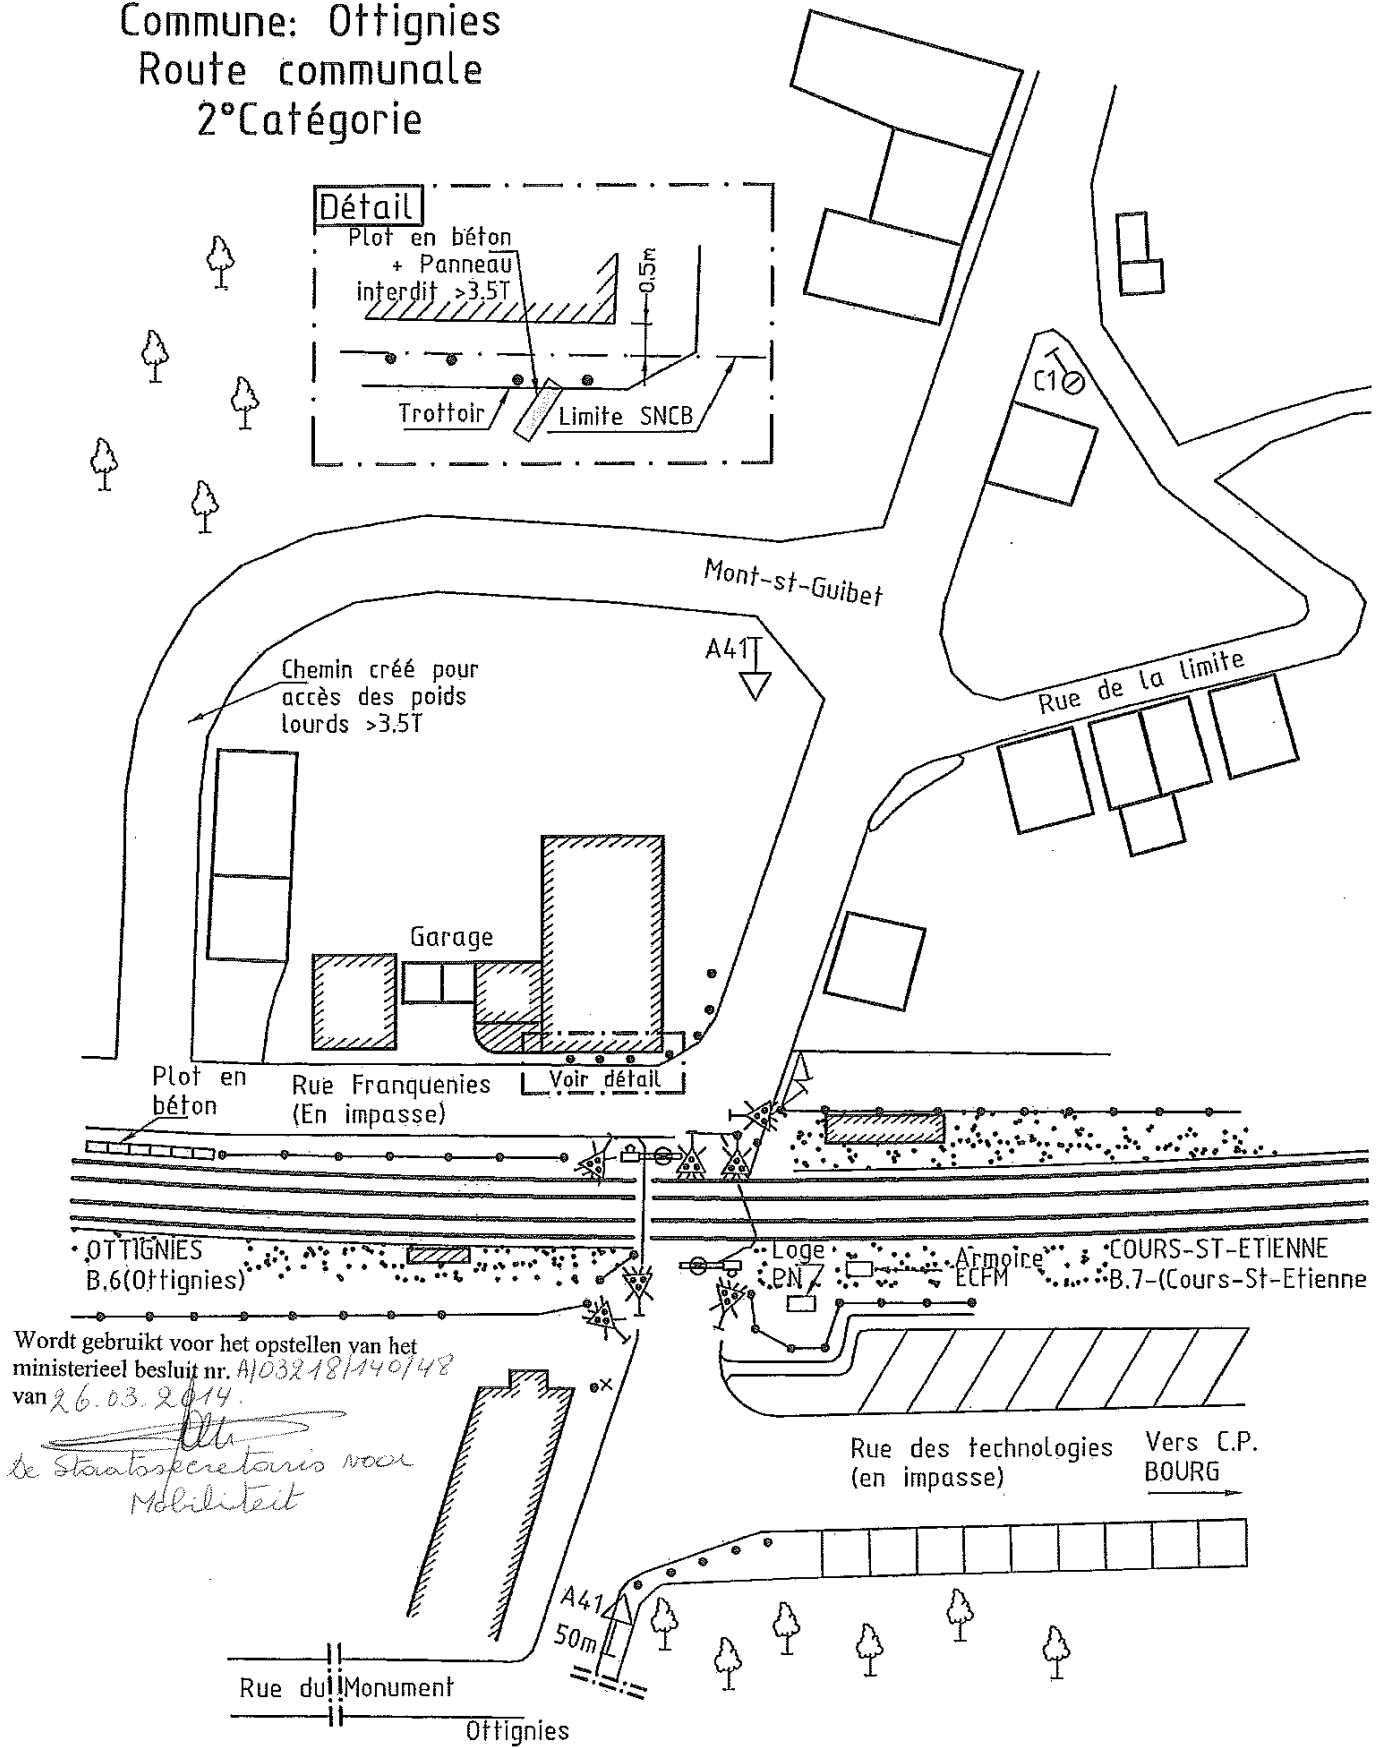 Commune: Ottignies
Route communale
2°Catégorie
Détail
Plot en béton
+ Panneau
interdit >3.5T
0.5m
Trottoir
Limite SNCB
C1
Mont-st-Guibet
A41
Rue de la limite
Chemin créé pour
accès des poids
lourds >3.5T
Garage
Voir détail
Plot en
béton
Rue Franquenies
(En impasse)
OTTIGNIES
B.6(Ottignies)
Loge
PN
Armoire
ECFM
COURS-ST-ETIENNE
B.7-(Cours-St-Etienne
Wordt gebruikt voor het opstellen van het
ministerieel besluit nr. A/03218/140/48
van 26.03.2014.
De Staatssecretaris voor
Mobiliteit
x
Rue des technologies
(en impasse)
Vers C.P.
BOURG
A41
50m
Rue du Monument
Ottignies